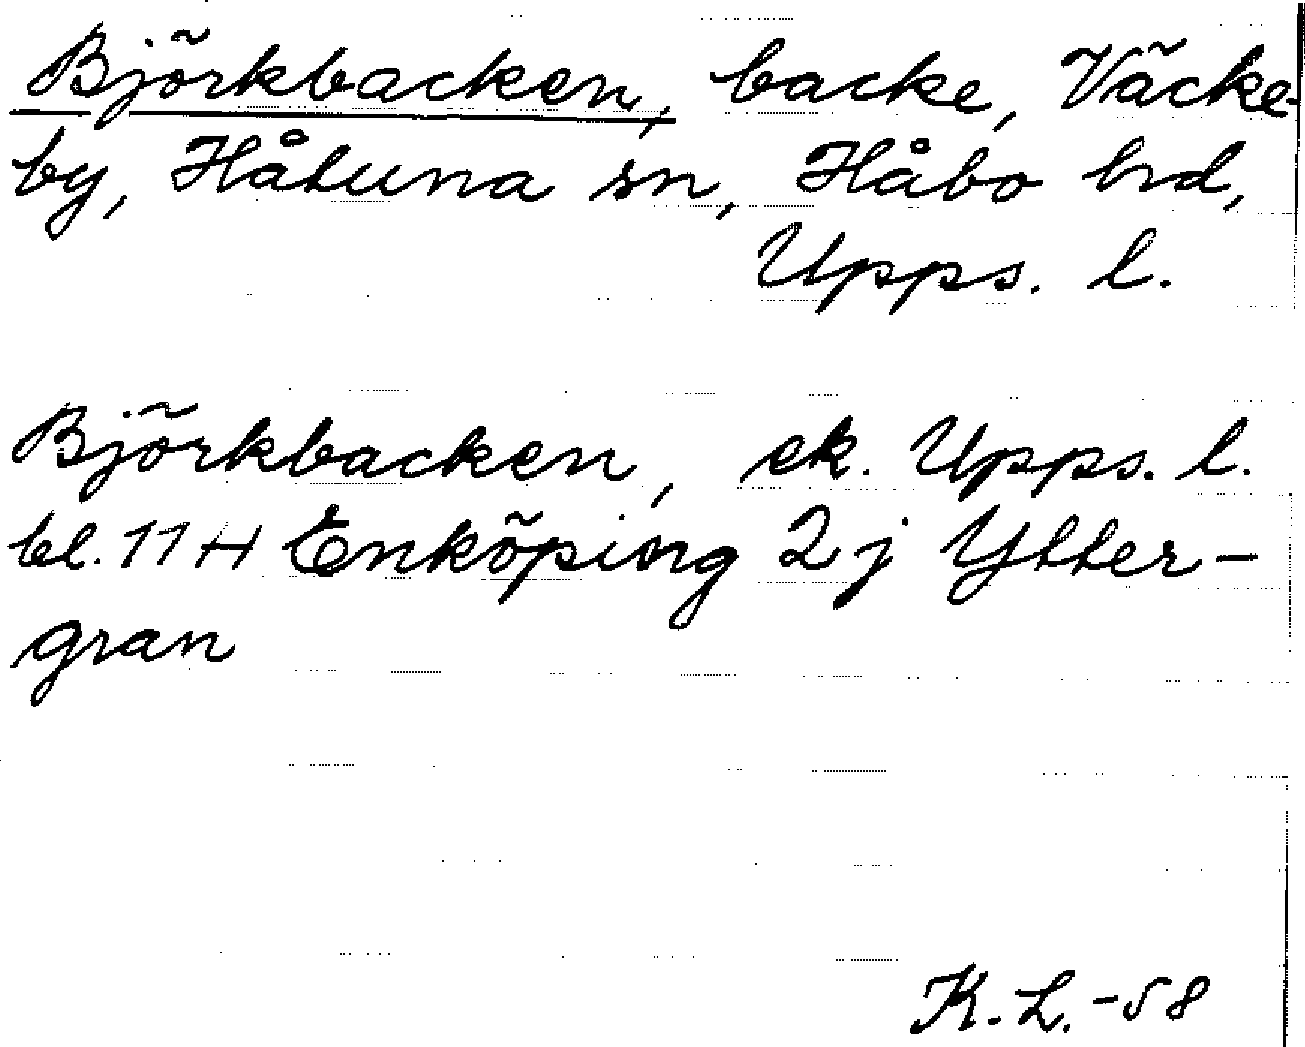 Björkbacken, backe, Väcke-
by, Håtuna sn, Håbo hd,
Upps. l.
Björkbacken, ek. Upps. l.
bl. 11 H Enköping 2 j Ytter-
gran
K. L. -58